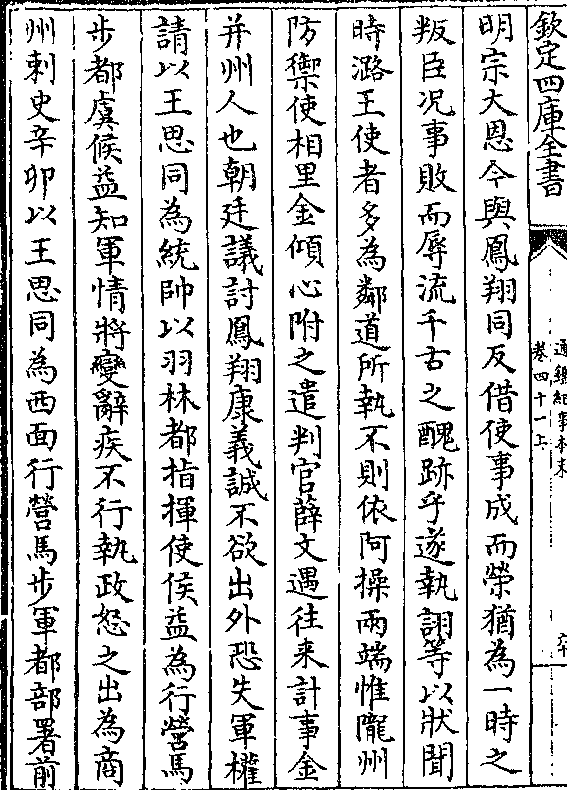 欽定四庫全書
通鑑紀事本末
卷四十一上
明宗大恩今與鳳翔同反借使事成而榮猶為一時之
叛臣况事敗而辱流千古之醜跡乎遂執詡等以狀聞
時潞王使者多為鄰道所執不則依阿操兩端惟隴州
防禦使相里金傾心附之遣判官薛文遇往来計事金
并州人也朝廷議討鳳翔康義誠不欲出外恐失軍權
請以王思同為統帥以羽林都指揮使侯益為行營馬
步都虞候益知軍情將變辭疾不行執政怒之出為商
州刺史辛卯以王思同為西面行營馬步軍都部署前